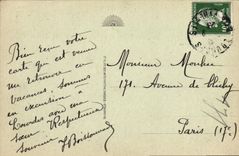 Bien reçu votre
carte qui est venue
me retrouver en
vacances. Sommes
en excursion à
Lourdes avec ma
sœur. Respectueux
Souvenir
Monsieur
171. Avenue de Clichy
Paris (17